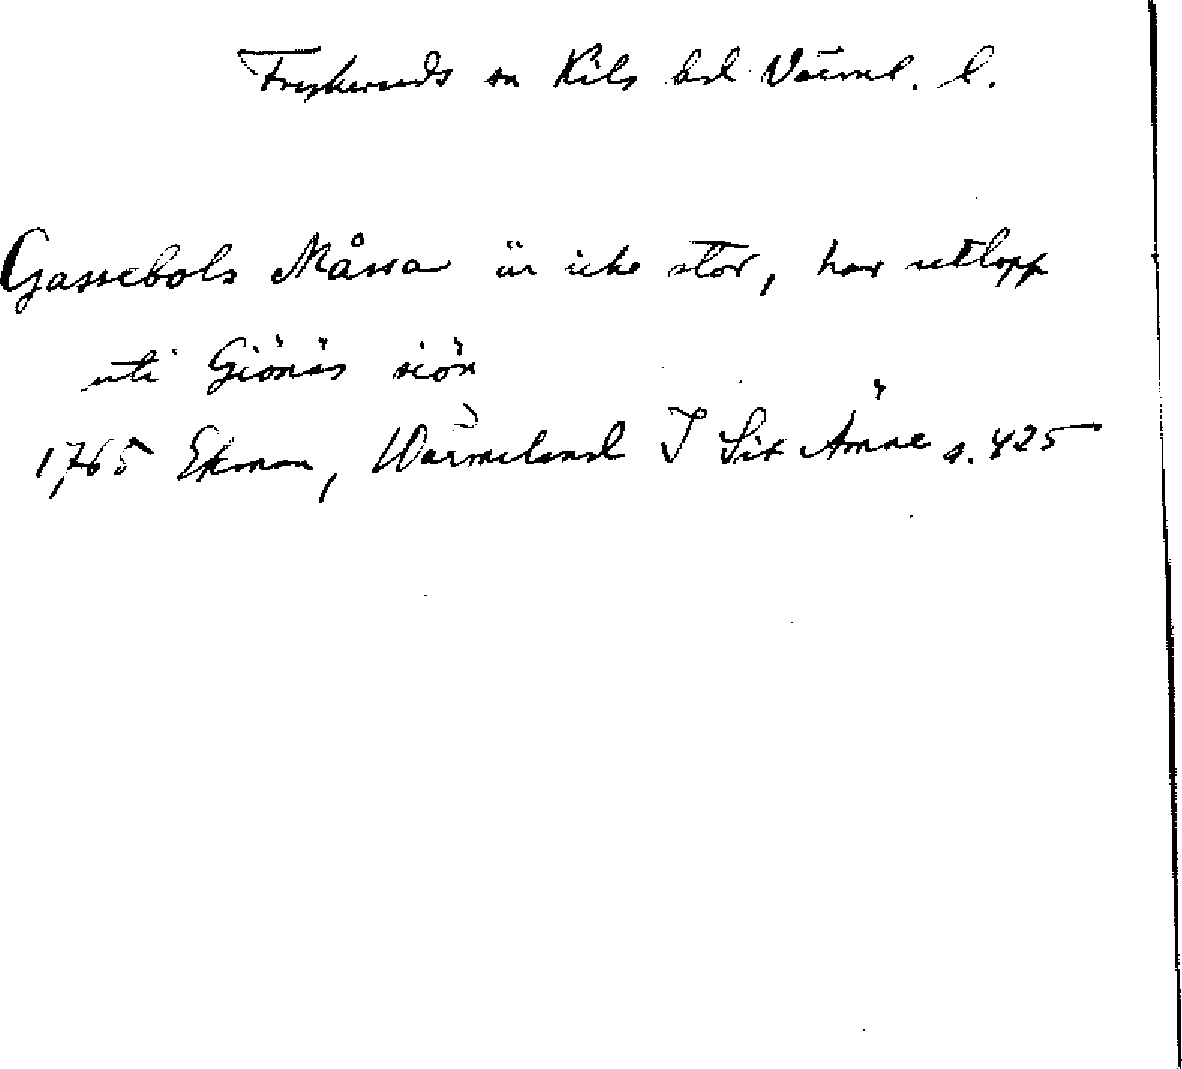 Frykeruds sn Kils hd Värml. l.
Gassebols Måssa är icke stor, har utlopp
uti Giönäs siön
1765 Ekman, Wärmeland I Sit Ämne s. 425